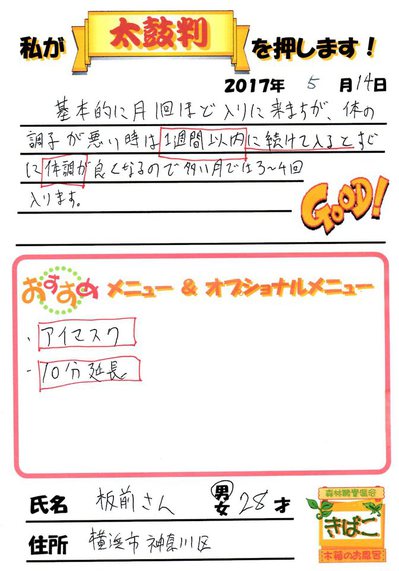 私が 太鼓判 を押します!
2017年 5 月 14日
基本的に月1回ほど入りに来ますが、体の
調子が悪い時は1週間以内に続けて入るとすぐ
に体調が良くなるので多い月では3〜4回
入ります。
GOOD!
おすすめ メニュー & オプショナルメニュー
・アイマスク
・10分延長
氏名 板前さん 男 女 28才
住所 横浜市神奈川区
森林酵素温浴
きばこ
木箱のお風呂